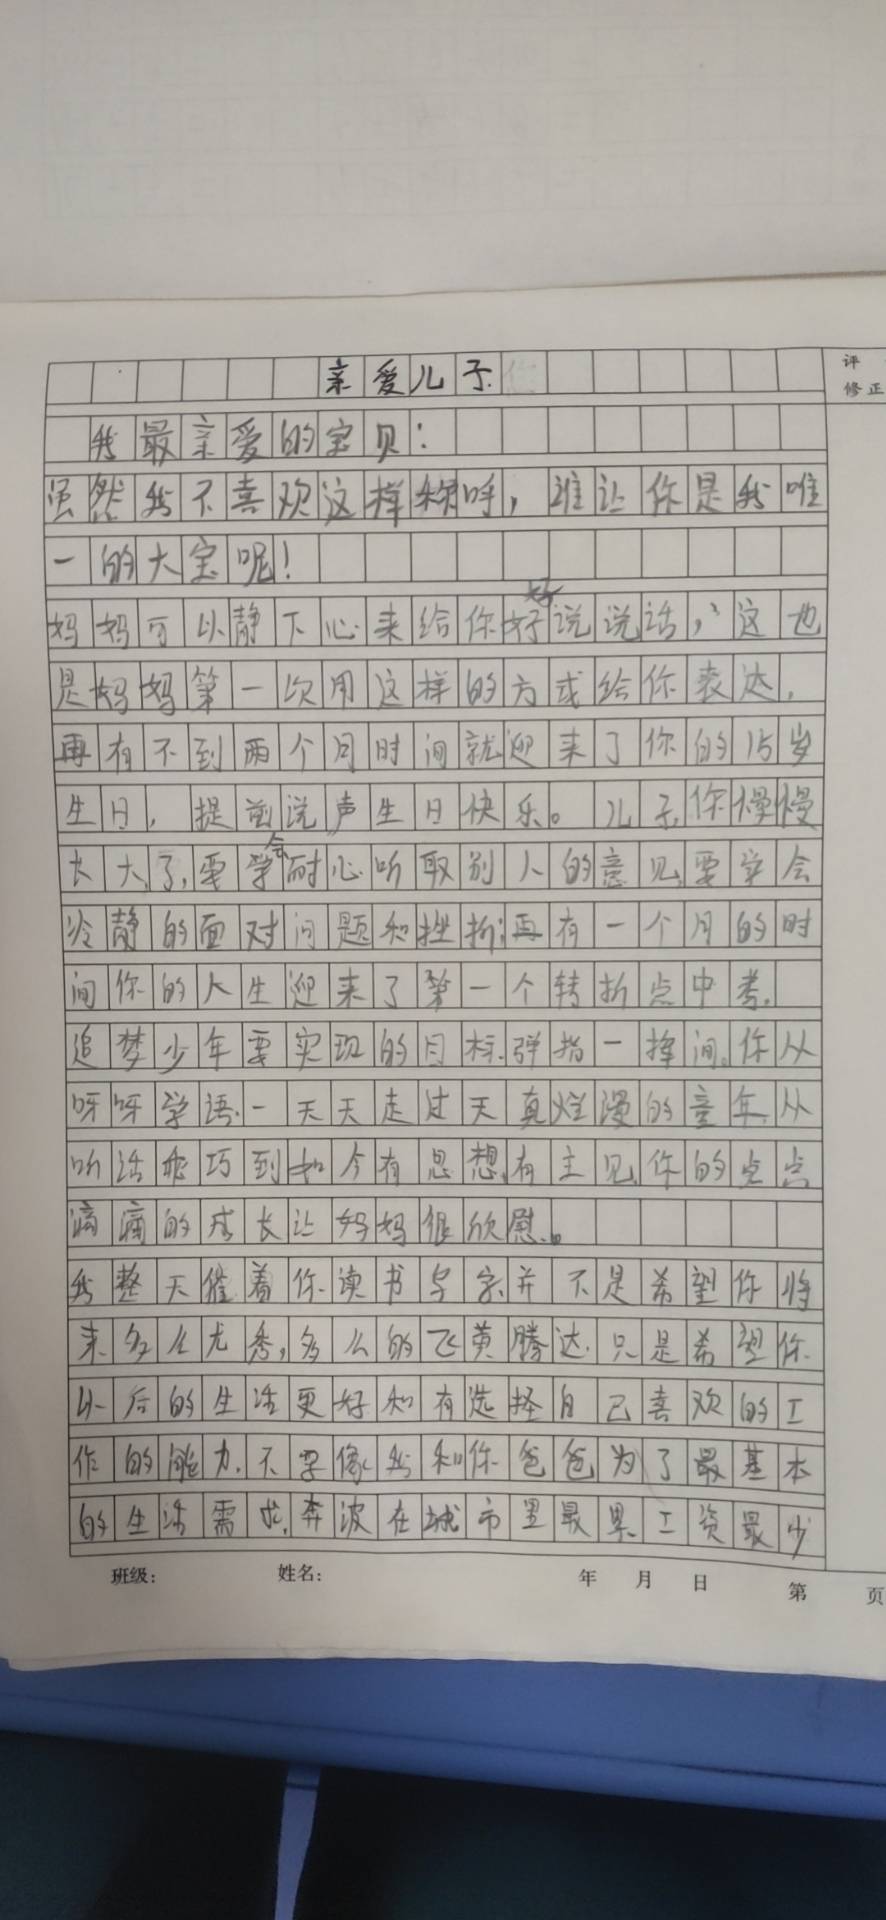 亲爱儿子
评
修正
我最亲爱的宝贝：
虽然我不喜欢这样称呼，谁让你是我唯
一的大宝呢！
妈妈可以静下心来给你好好说说话，这也
是妈妈第一次用这样的方式给你表达，
再有不到两个月时间就迎来了你的15岁
生日，提前说声生日快乐。儿子，你慢慢
长大了，要学会耐心听取别人的意见，要学会
冷静的面对问题和挫折；再有一个月的时
间你的人生迎来了第一个转折点中考，
追梦少年要实现的目标，弹指一挥间。你从
呀呀学语，一天天走过天真烂漫的童年，从
听话乖巧到如今有思想，有主见，你的点点
滴滴的成长让妈妈很欣慰。
我整天催着你读书写字，并不是希望你将
来多么尤秀，多么的飞黄腾达，只是希望你
以后的生活更好和有选择自己喜欢的工
作的能力，不要像我和你爸爸为了最基本
的生活需求，奔波在城市里最累、工资最少
班级： 姓名： 年 月 日 第 页